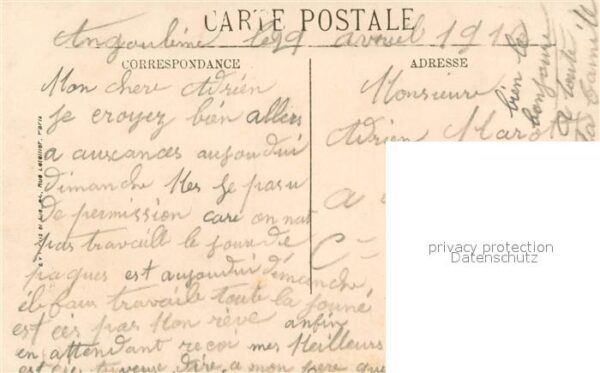 CARTE POSTALE
Angoulème le 29 avril 1910
CORRESPONDANCE
Mon chere Adrien
Je croyez bien allers
a auxcances aujourdui
dimanche Mes Je pas u
de permission care on nat
pas travaillt le jour de
paques est aujourdui dimanche
il faux travaile toute la jouné
est ces pas Mon rève anfin
en attendant recoi mes Meilleurs
dire a mon pere que
ADRESSE
Monsieure
Adrien
a
C
bien le
bonjoure
a toute
la famille
privacy protection
Datenschutz